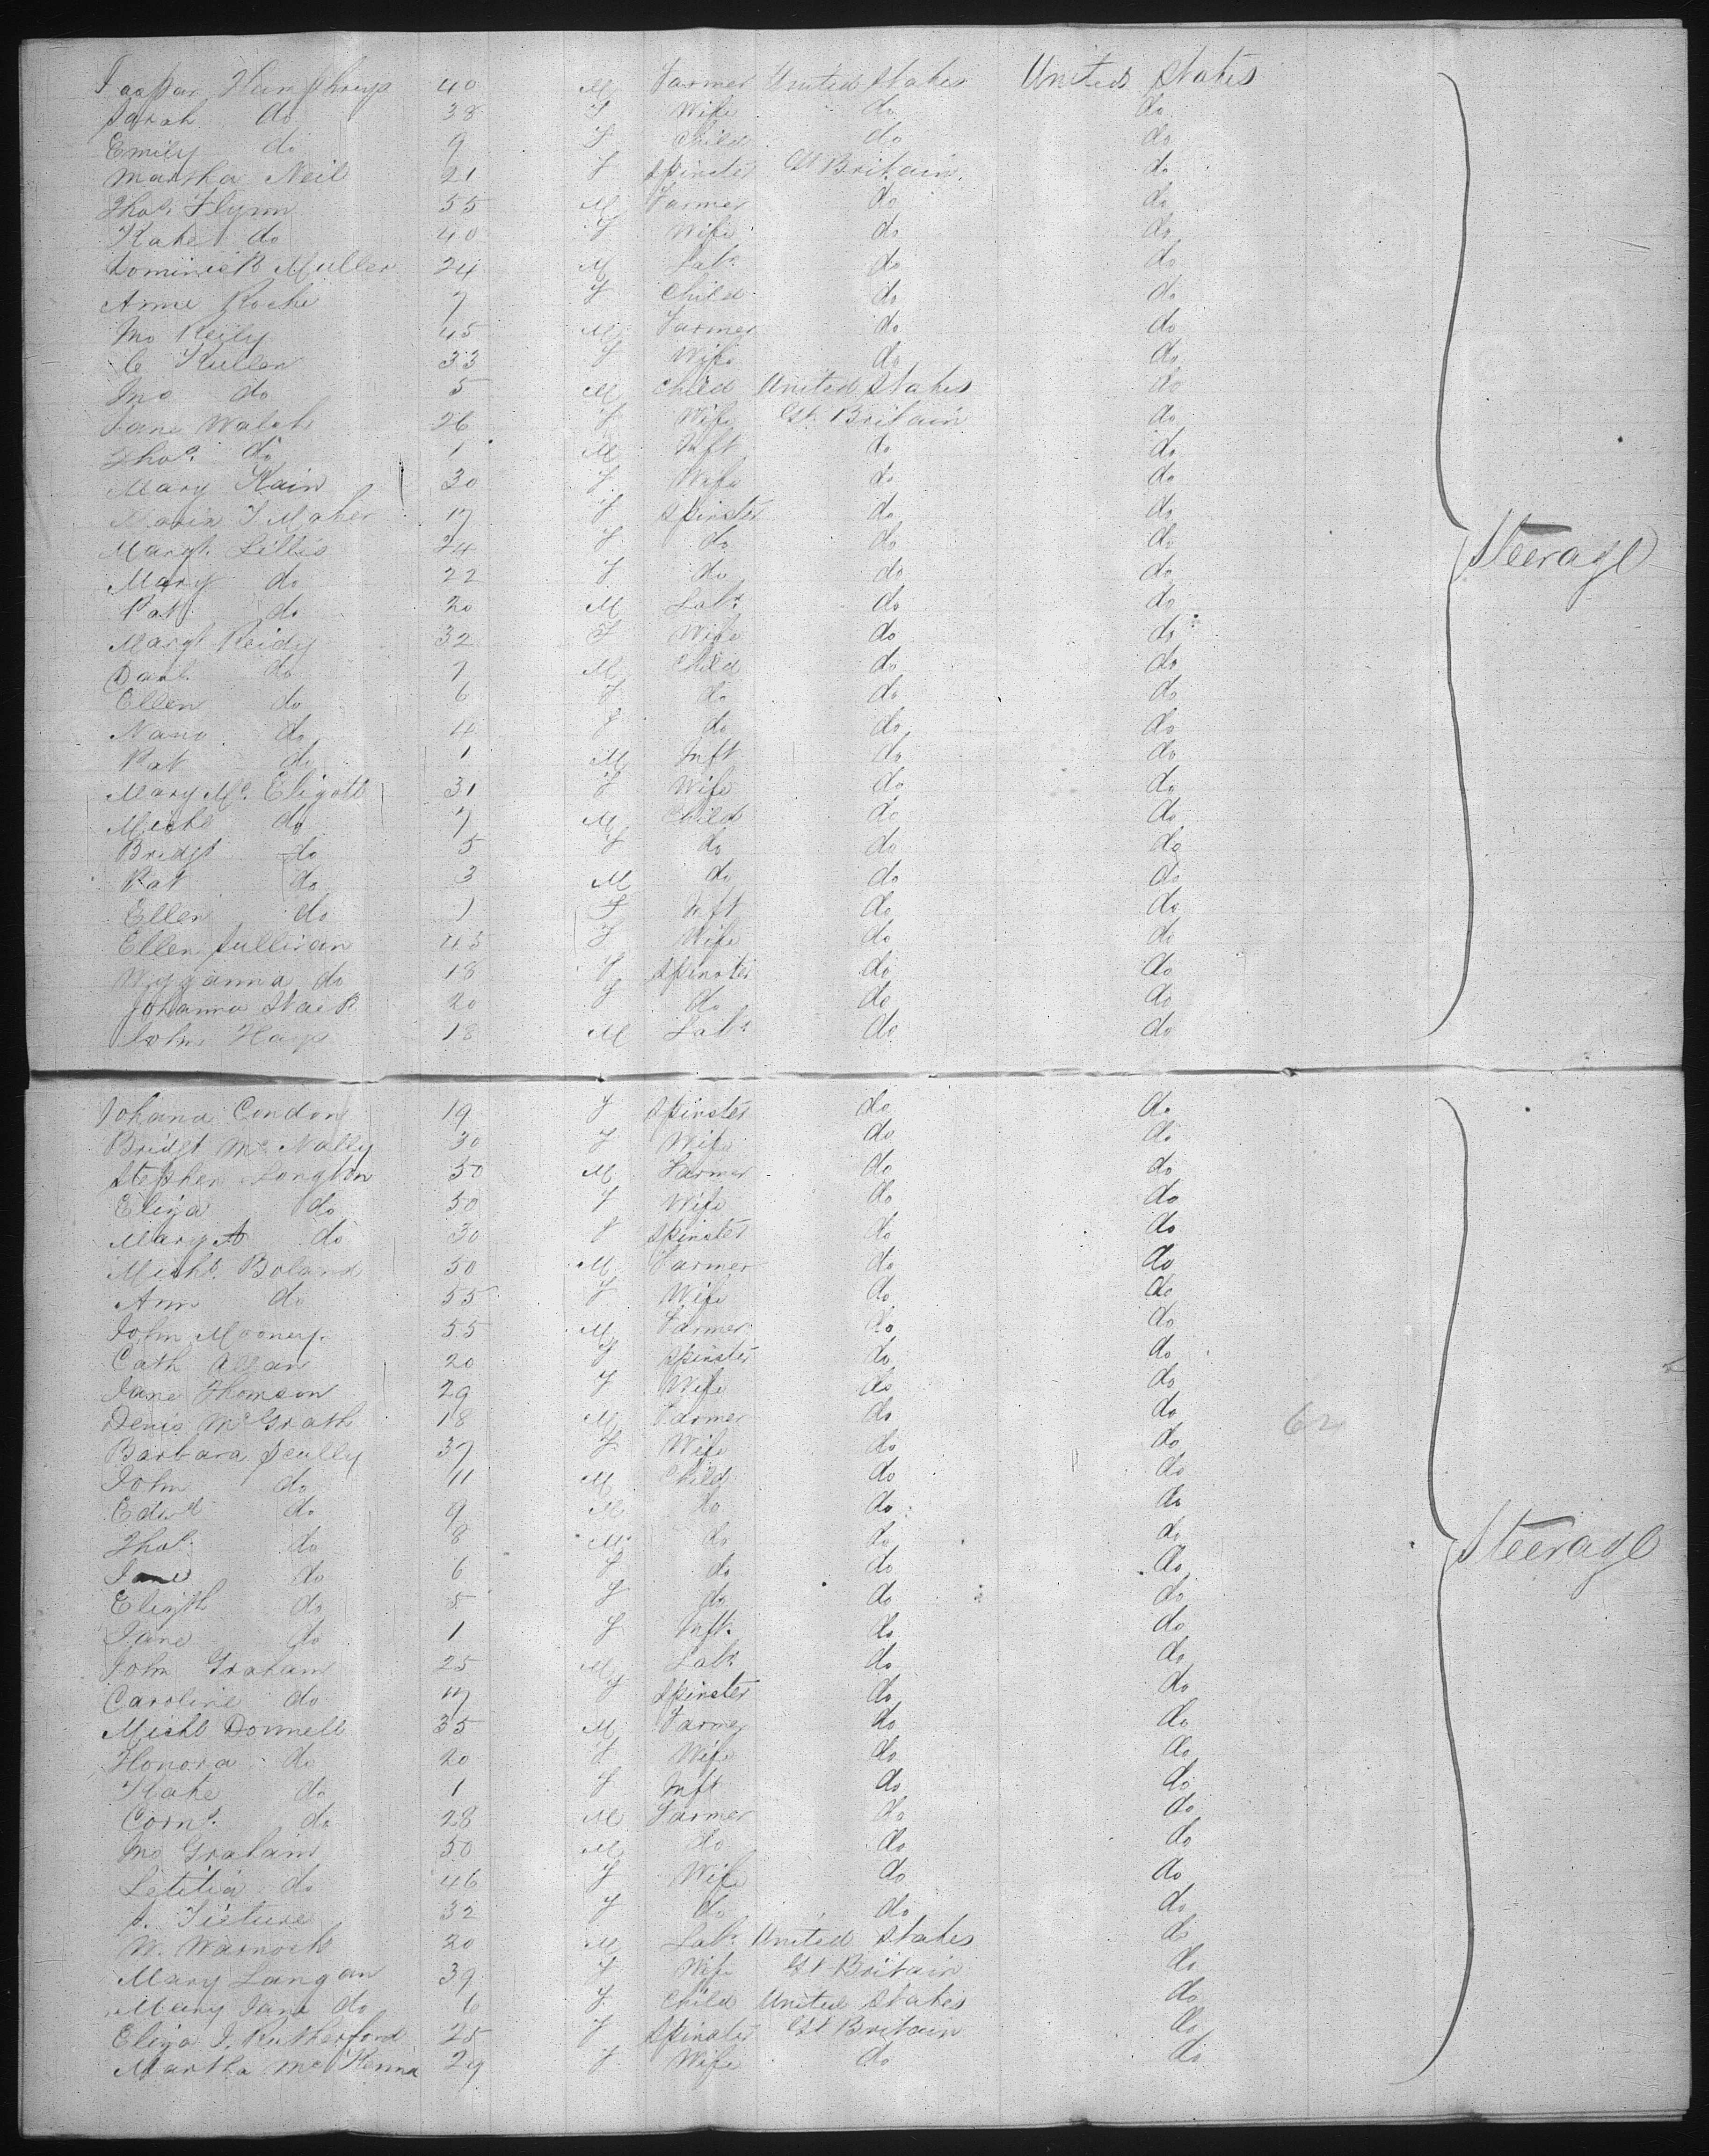 Jaspar Humphreys 40 M Farmer United States United States
Sarah do 38 F Wife do do
Emily do 9 F Child do do
Martha Neil 21 F Spinster Gt Britain do
Thos. Flynn 55 M Farmer do do
Kate do 40 F Wife do do
Dominick Muller 24 M Labr do do
Anne Roche 7 F Child do do
Jno Reily 45 M Farmer do do
C Kullen 33 F Wife do do
Jno do 5 M Child United States do
Jane Walsh 26 F Wife Gt. Britain do
Thos. do 1 M Inft do do
Mary Kain 30 F Wife do do
Maria T Maher 17 F Spinster do do
Margt. Lillis 24 F do do do
Mary do 22 F do do do
Pat do 20 M Labr do do
Margt Reidy 32 F Wife do do
Danl. do 7 M Child do do
Ellen do 6 F do do do
Nano do 4 F do do do
Pat do 1 M Inft do do
Mary Mc. Eligott 31 F Wife do do
Michl do 7 M Child do do
Bridgt do 5 F do do do
Pat do 3 M do do do
Ellen do 1 F Inft do do
Ellen Sullivan 45 F Wife do do
do 18 F Spinster do do
Johanna Stack 20 F do do do
John Hays 18 M Labr do do
Steerage
Johana Condon 19 F Spinster do do
Bridgt Mc Nally 30 F Wife do do
Stephen Longton 50 M Farmer do do
Eliza do 50 F Wife do do
Mary A do 30 F Spinster do do
Michl. Boland 50 M Farmer do do
Ann do 55 F Wife do do
John Mooney. 55 M Farmer do do
Cath Allan 20 F Spinster do do
Jane Thomson 29 F Wife do do
Denis McGrath 18 M Farmer do do 62
Barbara Scully 37 F Wife do do
John do 11 M Child do do
Edwd do 9 M do do do
Thos. do 8 M do do do
Jane do 6 F do do do
Elizth do 5 F do do do
Jane do 1 F Inft. do do
John Graham 25 M Labr do do
Caroline do 17 F Spinster do do
Michl Donnell 35 M Farmer do do
Honora do 20 F Wife do do
Kate do 1 F Inft do do
Corns. do 28 M Farmer do do
Jno Graham 50 M do do do
Letitia do 46 F Wife do do
32 F do do do
W. Warnock 20 M Labr United States do
Mary Langan 39 F Wife Gt Britain do
Mary Jane do 6 F Child United States do
Eliza J. Rutherford 25 F Spinster Gt Britain do
Martha McKenna 29 F Wife do do
Steerage